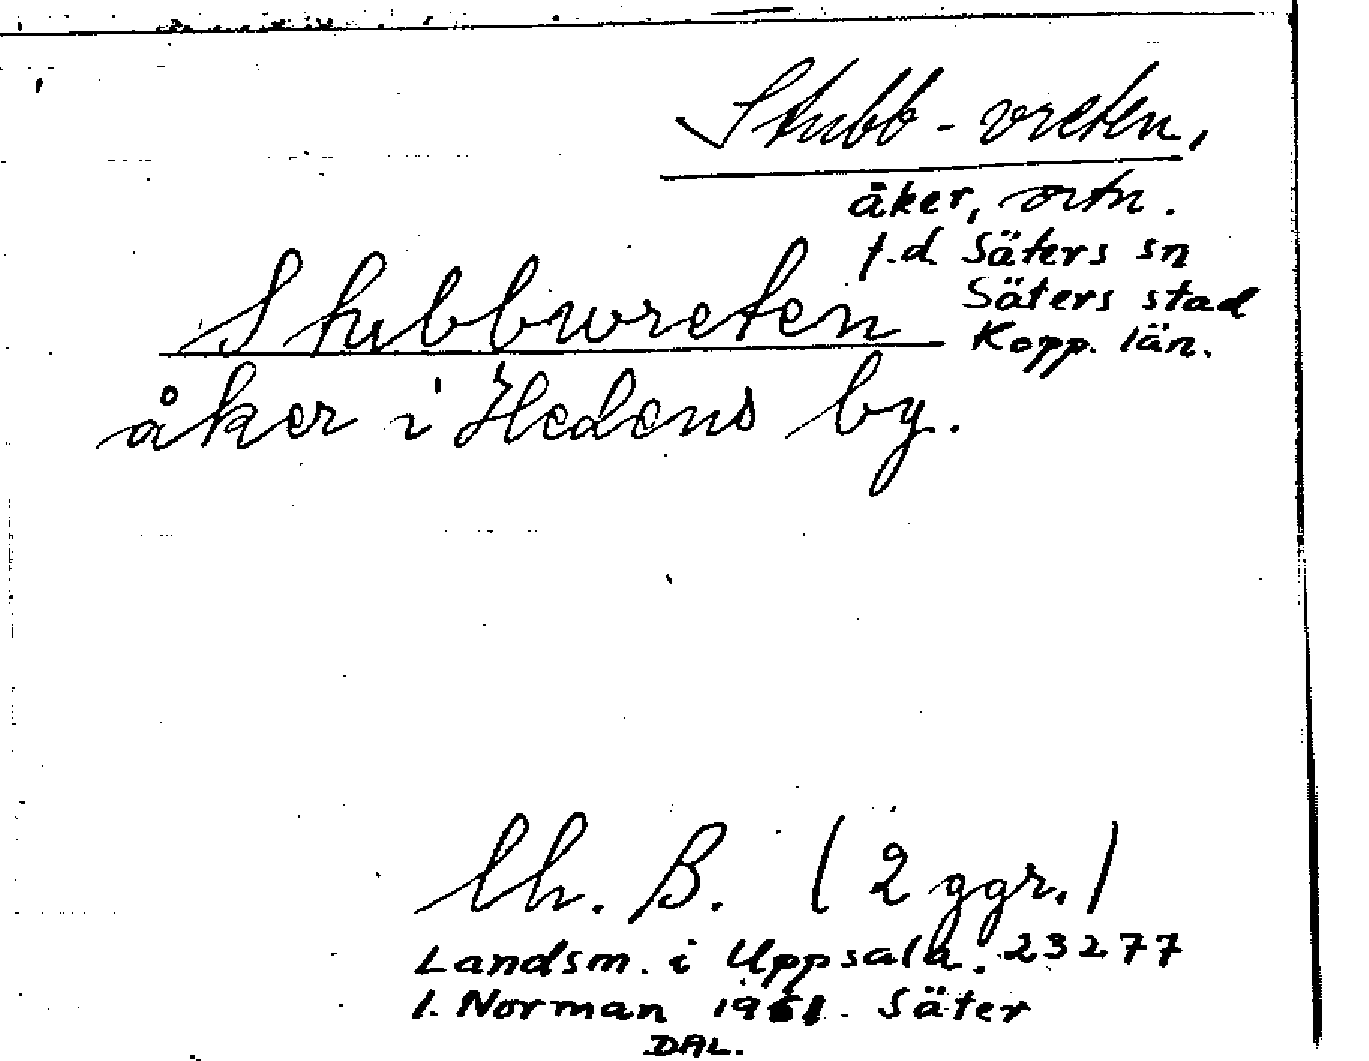 Stubb-vreten,
åker, ortn.
f.d. Säters sn
Säters stad
Kopp. län.
Stubbwreten
åker i Hedens by.
lh. B. (2 ggr.)
Landsm. i Uppsala. 23277
I. Norman 1961. Säter
DAL.